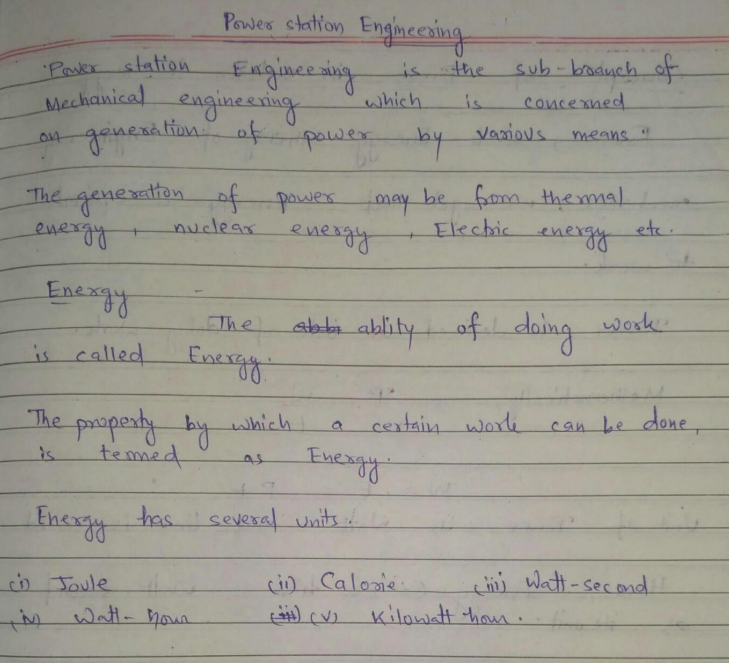 Power station Engineering
"Power station Engineering is the sub-branch of
Mechanical engineering which is concerned
on generation of power by various means"
The generation of power may be from thermal
energy, nuclear energy, Electric energy etc.
Energy -
The ablity of doing work
is called Energy.
The property by which a certain work can be done,
is termed as Energy.
Energy has several units.
(i) Joule (ii) Calorie (iii) Watt-second
(iv) Watt-hour (v) Kilowatt hour.